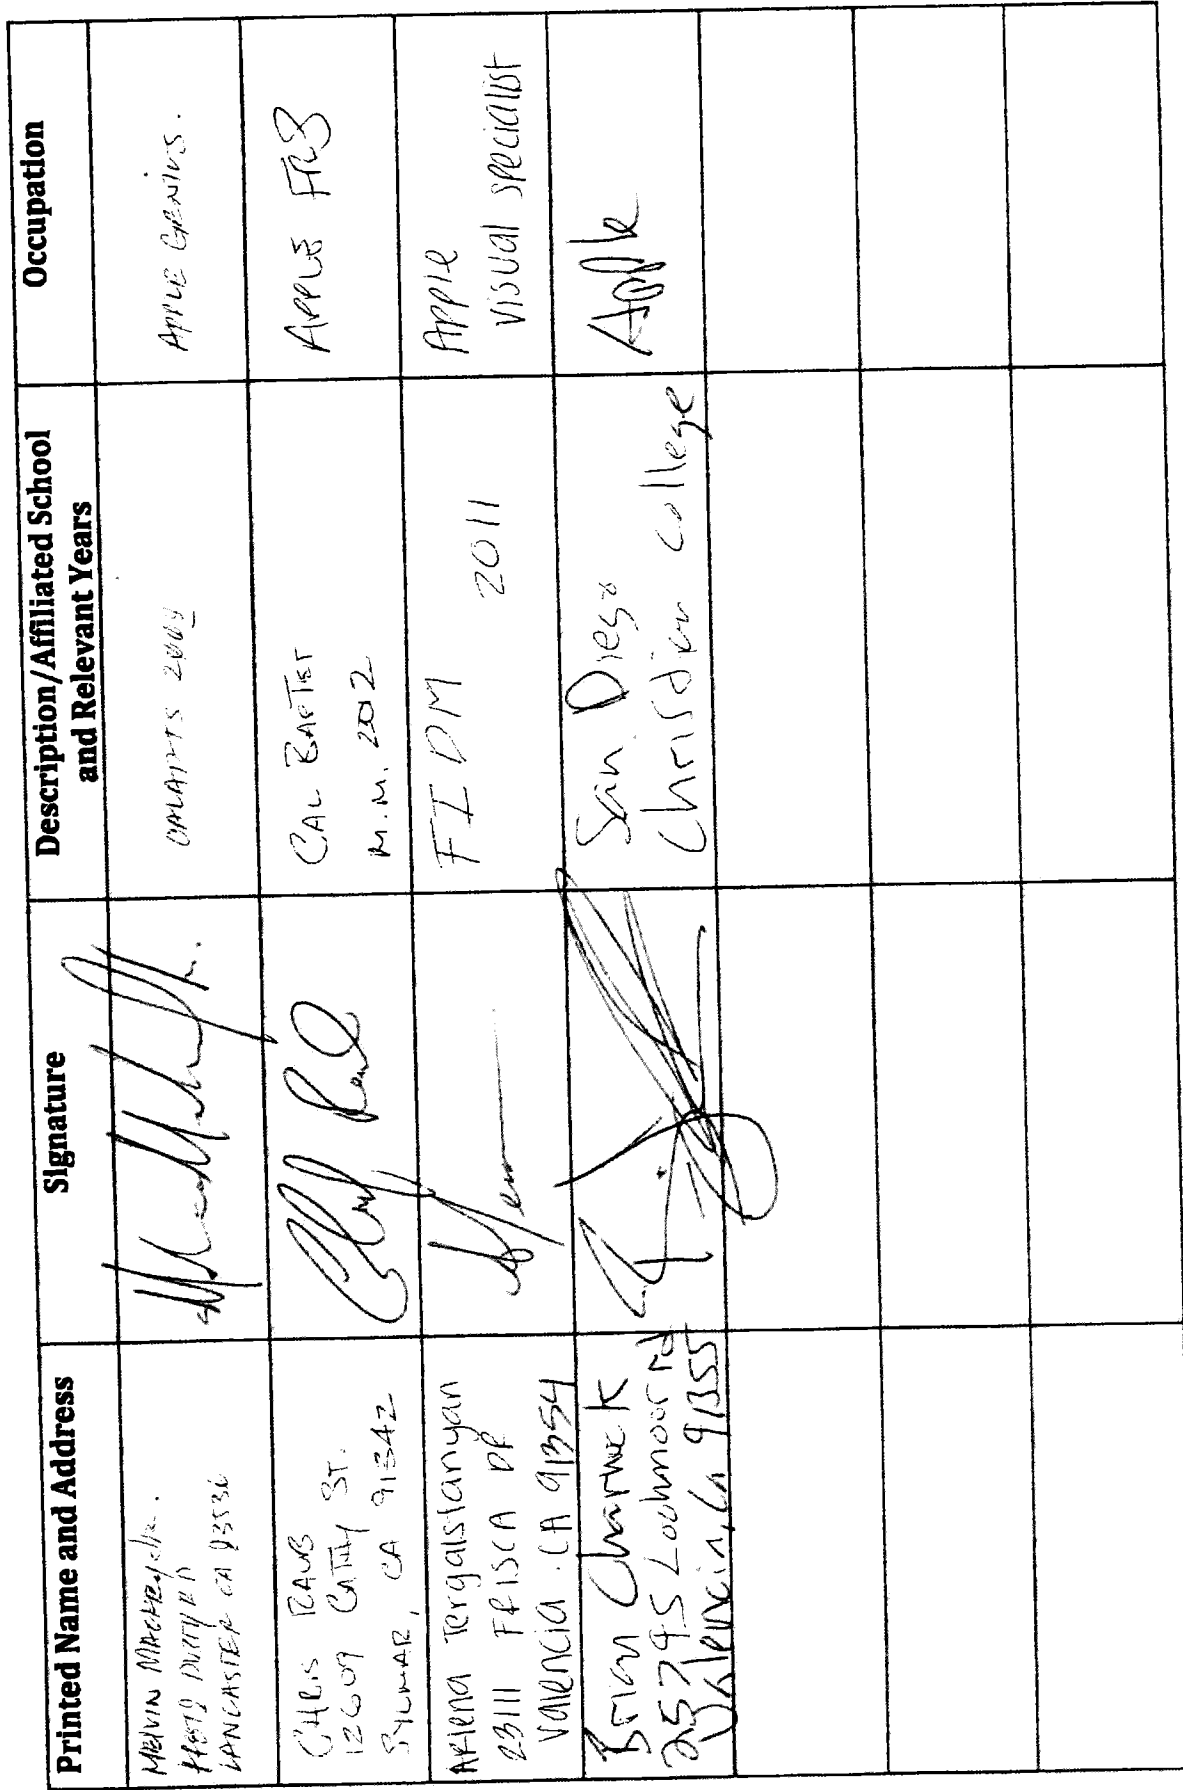 Printed Name and Address
Signature
Description/Affiliated School
and Relevant Years
Occupation
MELVIN
LANCASTER CA 93536
APPLE GENIUS.
CHRIS RAUB
12609 CATHY ST.
SYLMAR, CA 91342
CAL BAPTIST
M.M. 2012
APPLE FRS
Arlena Tergalstanyan
23111 FRISCA DR
Valencia . CA 91354
FIDM 2011
Apple
visual specialist
Brian Charnock
25795 Lochmoor rd
Valencia, Ca 91355
San Diego
Christian college
Apple